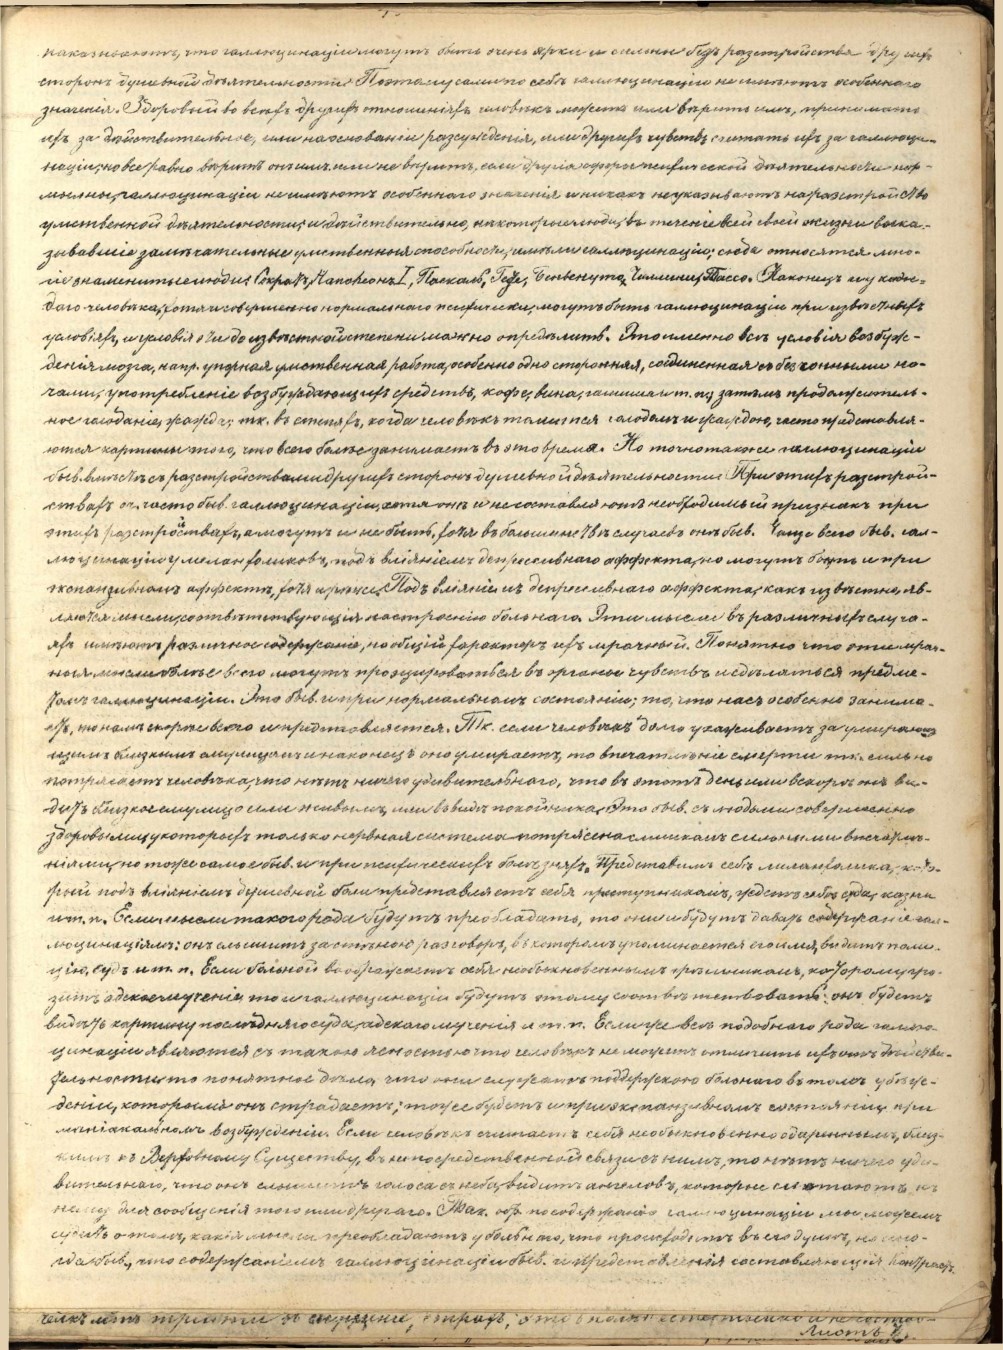 наказываютъ, что галлюцинаціи могутъ быть очень ярки и сильны безъ разстройства другихъ
сторонъ душевной дѣятельности. Поэтому сами по себѣ галлюцинаціи не имѣютъ особеннаго
значенія. Здоровый во всѣхъ другихъ отношеніяхъ человѣкъ можетъ или вѣрить имъ, принимать
ихъ за дѣйствительное, или на основаніи разсужденія, или другихъ чувствъ считать ихъ за галлюци-
націи, но все равно вѣритъ онъ имъ или не вѣритъ, если другія сферы психической дѣятельности нор-
мальны, галлюцинаціи не имѣютъ особеннаго значенія и никакъ не указываютъ на разстройство
умственной дѣятельности; и дѣйствительно, нѣкоторые люди, въ теченіе всей своей жизни выка-
зывавшіе замѣчательныя умственныя способности, имѣли галлюцинаціи; сюда относятся мно-
гіе знаменитые люди: Сократъ, Наполеонъ I, Паскаль, Гете, Бенвенуто Челлини, Тассо. Наконецъ и у каж-
даго человѣка, хотя и совершенно нормальнаго психически, могутъ быть галлюцинаціи при извѣстныхъ
условіяхъ, и условія эти до извѣстной степени можно опредѣлить. Это именно всѣ условія возбуж-
денія мозга, напр. упорная умственная работа, особенно односторонняя, соединенная съ безсонными но-
чами; употребленіе возбуждающихъ средствъ, кофе, вина, гашиша и т. п.; затѣмъ продолжитель-
ное голоданіе, жажда; тк. въ степяхъ, когда человѣкъ томится голодомъ и жаждою, часто представля-
ются картины того, что всего болѣе занимаетъ въ это время. Но точно также галлюцинаціи
быв. вмѣстѣ съ разстройствами другихъ сторонъ душевной дѣятельности. При этихъ разстрой-
ствахъ оч. часто быв. галлюцинаціи, хотя онѣ и не составляютъ необходимый признакъ при
этихъ разстройствахъ, а могутъ и не быть, хотя въ большинствѣ случаевъ онѣ быв. Чаще всего быв. гал-
люцинаціи у меланхоликовъ, подъ вліяніемъ депрессивнаго аффекта, но могутъ быть и при
экспанзивномъ аффектѣ, хотя и рѣже. Подъ вліяніемъ депрессивнаго аффекта, какъ извѣстно, яв-
ляются мысли, соотвѣтствующія настроенію больного. Эти мысли въ различныхъ случа-
яхъ имѣютъ различное содержаніе, но общій характеръ ихъ мрачный. Понятно что эти мрач-
ныя мысли болѣе всего могутъ проэцироваться въ органы чувствъ и сдѣлаться предме-
томъ галлюцинаціи. Это быв. и при нормальномъ состояніи; то, что насъ особенно занима-
етъ, то намъ скорѣе всего и представляется. Тк. если человѣкъ долго ухаживаетъ за умираю-
щимъ близкимъ ему лицомъ и наконецъ оно умираетъ, то впечатлѣніе смерти тк. сильно
потрясаетъ человѣка, что нѣтъ ничего удивительнаго, что въ этотъ день или вскорѣ онъ ви-
дитъ близкое ему лицо или живымъ, или въ видѣ покойника. Это быв. съ людьми совершенно
здоровыми, у которыхъ только нервная система потрясена слишкомъ сильными впечатлѣ-
ніями, но тоже самое быв. и при психическихъ болѣзняхъ. Представимъ себѣ меланхолика, кото-
рый подъ вліяніемъ душевной боли представляетъ себя преступникомъ, ждетъ себѣ суда, казни
и т. п. Если мысли такого рода будутъ преобладать, то они и будутъ давать содержаніе гал-
люцинаціямъ: онъ слышитъ за стѣною разговоръ, въ которомъ упоминается его имя, видитъ поли-
цію, судъ и т. п. Если больной воображаетъ себя необыкновеннымъ грѣшникомъ, которому гро-
зитъ адское мученіе, то и галлюцинаціи будутъ этому соотвѣтствовать: онъ будетъ
видѣть картину послѣдняго суда, адскаго мученія и т. п. Если же всѣ подобнаго рода галлю-
цинаціи являются съ такою ясностью что человѣкъ не можетъ отличить ихъ отъ дѣйстви-
тельности, то понятное дѣло, что они служатъ поддержкою больного въ томъ убѣж-
деніи, которымъ онъ страдаетъ; тоже будетъ и при экспанзивномъ состояніи, при
маніакальномъ возбужденіи. Если человѣкъ считаетъ себя необыкновенно одареннымъ, близ-
кимъ къ Верховному Существу, въ непосредственной связи съ нимъ, то нѣтъ ничего уди-
вительнаго, что онъ слышитъ голоса съ неба, видитъ ангеловъ, которые слетаютъ къ
нему для сообщенія того или другаго. Так. обр. по содержанію галлюцинаціи мы можемъ
судить о томъ, какія мысли преобладаютъ у больного, что происходитъ въ его душѣ, но ино-
гда быв., что содержаніемъ галлюцинаціи быв. и представленія составляющія контрастъ.
Листъ 7.